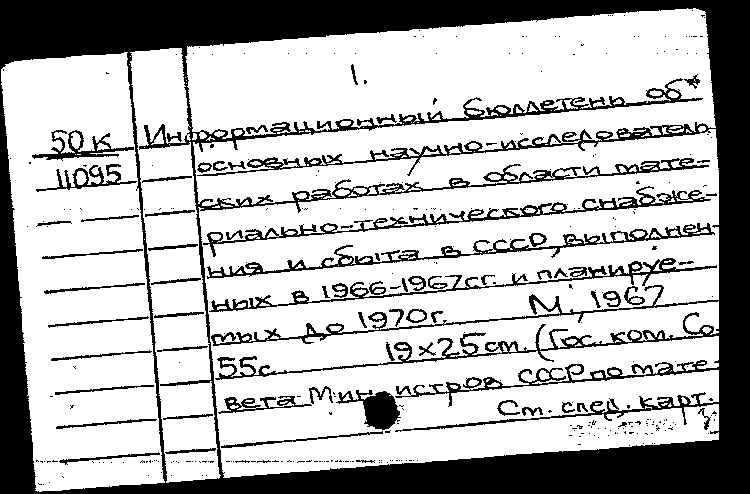 1.
50к Информационный бюллетень об*
11095 основных научно-исследователь
ских работах в области мате-
риально-технического снабже-
ния и сбыта в СССР, выполнен-
ных в 1966-1967гг. и планируе-
мых до 1970г. М., 1967
55с. 19×25см. (Гос. ком. Со
вета Министров СССР по мате-
См. след. карт.